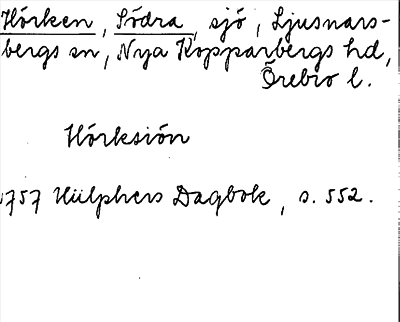 Hörken, Södra, sjö, Ljusnars-
bergs sn, Nya Kopparbergs hd,
Örebro l.
Hörksiön
1757 Hülphers Dagbok, s. 552.